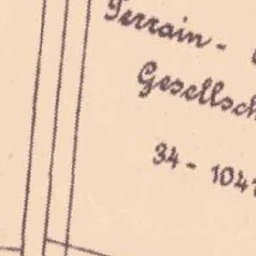 Terrain-
Gesellsch
34-104